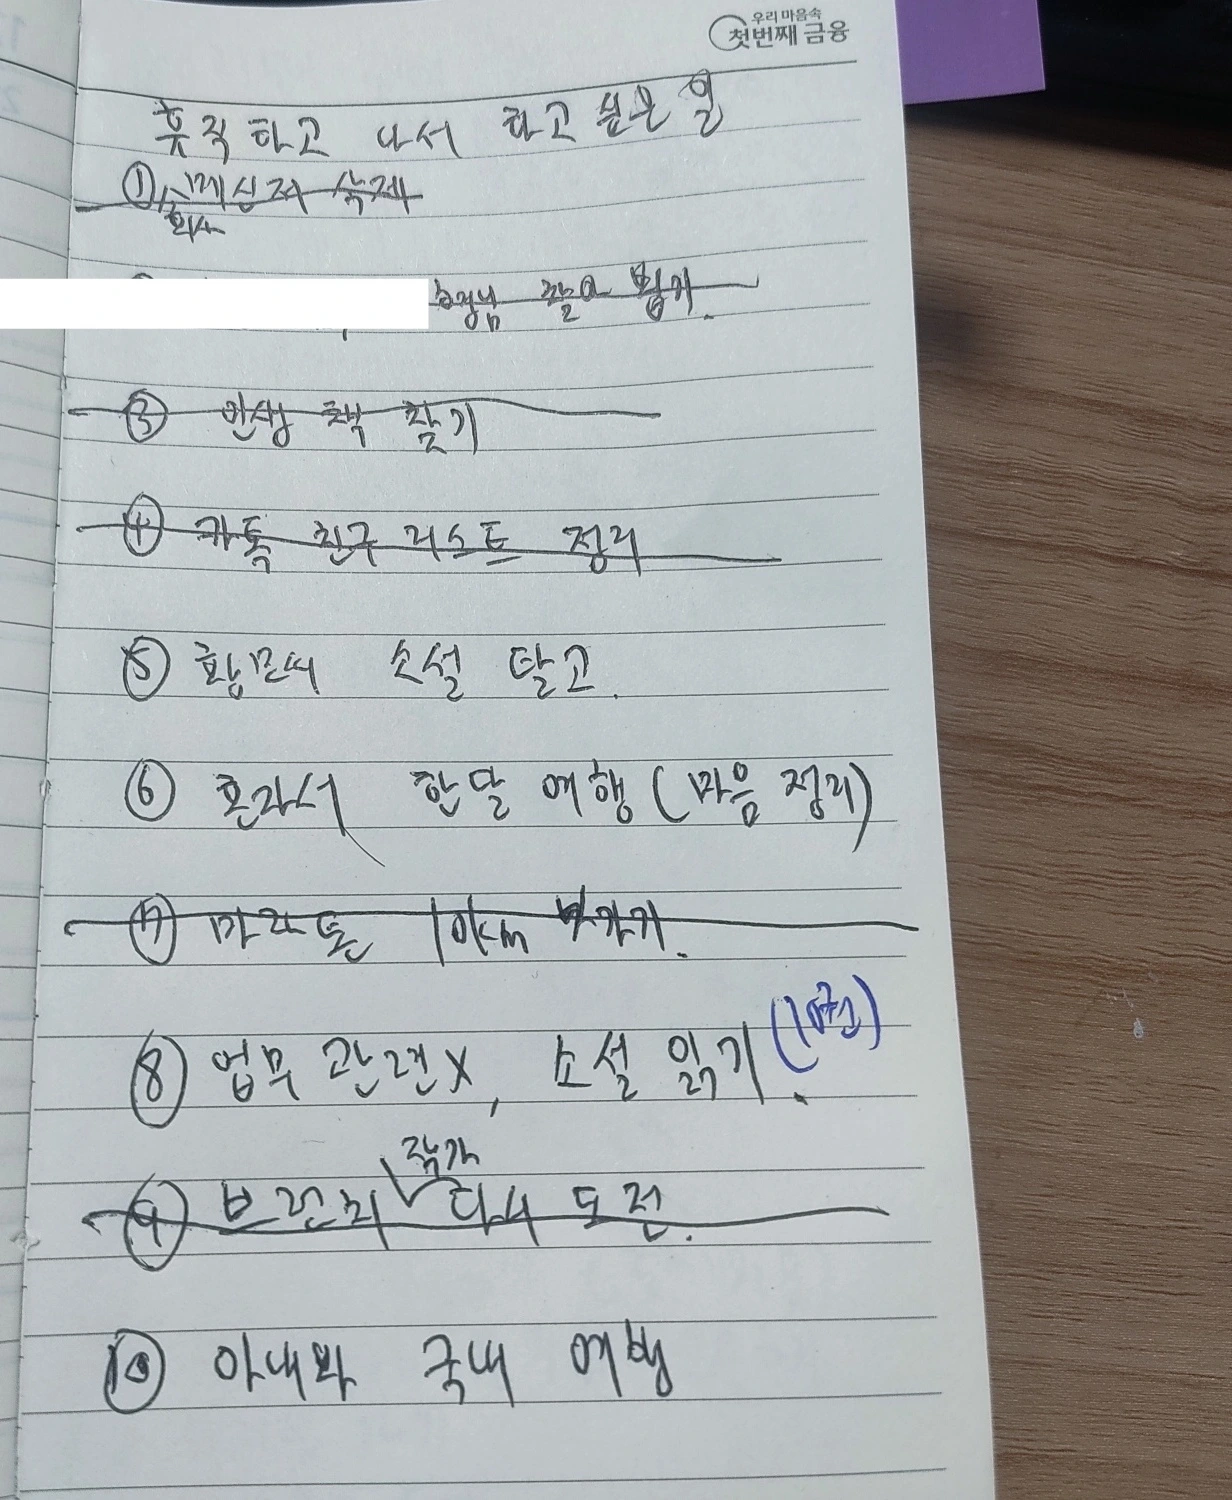 우리 마음속
첫번째 금융
휴직하고 나서 하고 싶은 일
① 메신저 삭제
회사
형님 찾아 뵙기.
③ 인생 책 찾기
④ 카톡 친구 리스트 정리
⑤ 소설 탈고.
⑥ 혼자서 한달 여행 (마음 정리)
⑦ 마라톤 10km 나가기.
⑧ 업무 관련X, 소설 읽기. (10권)
작가
⑨ 브런치 다시 도전.
⑩ 아내와 국내 여행